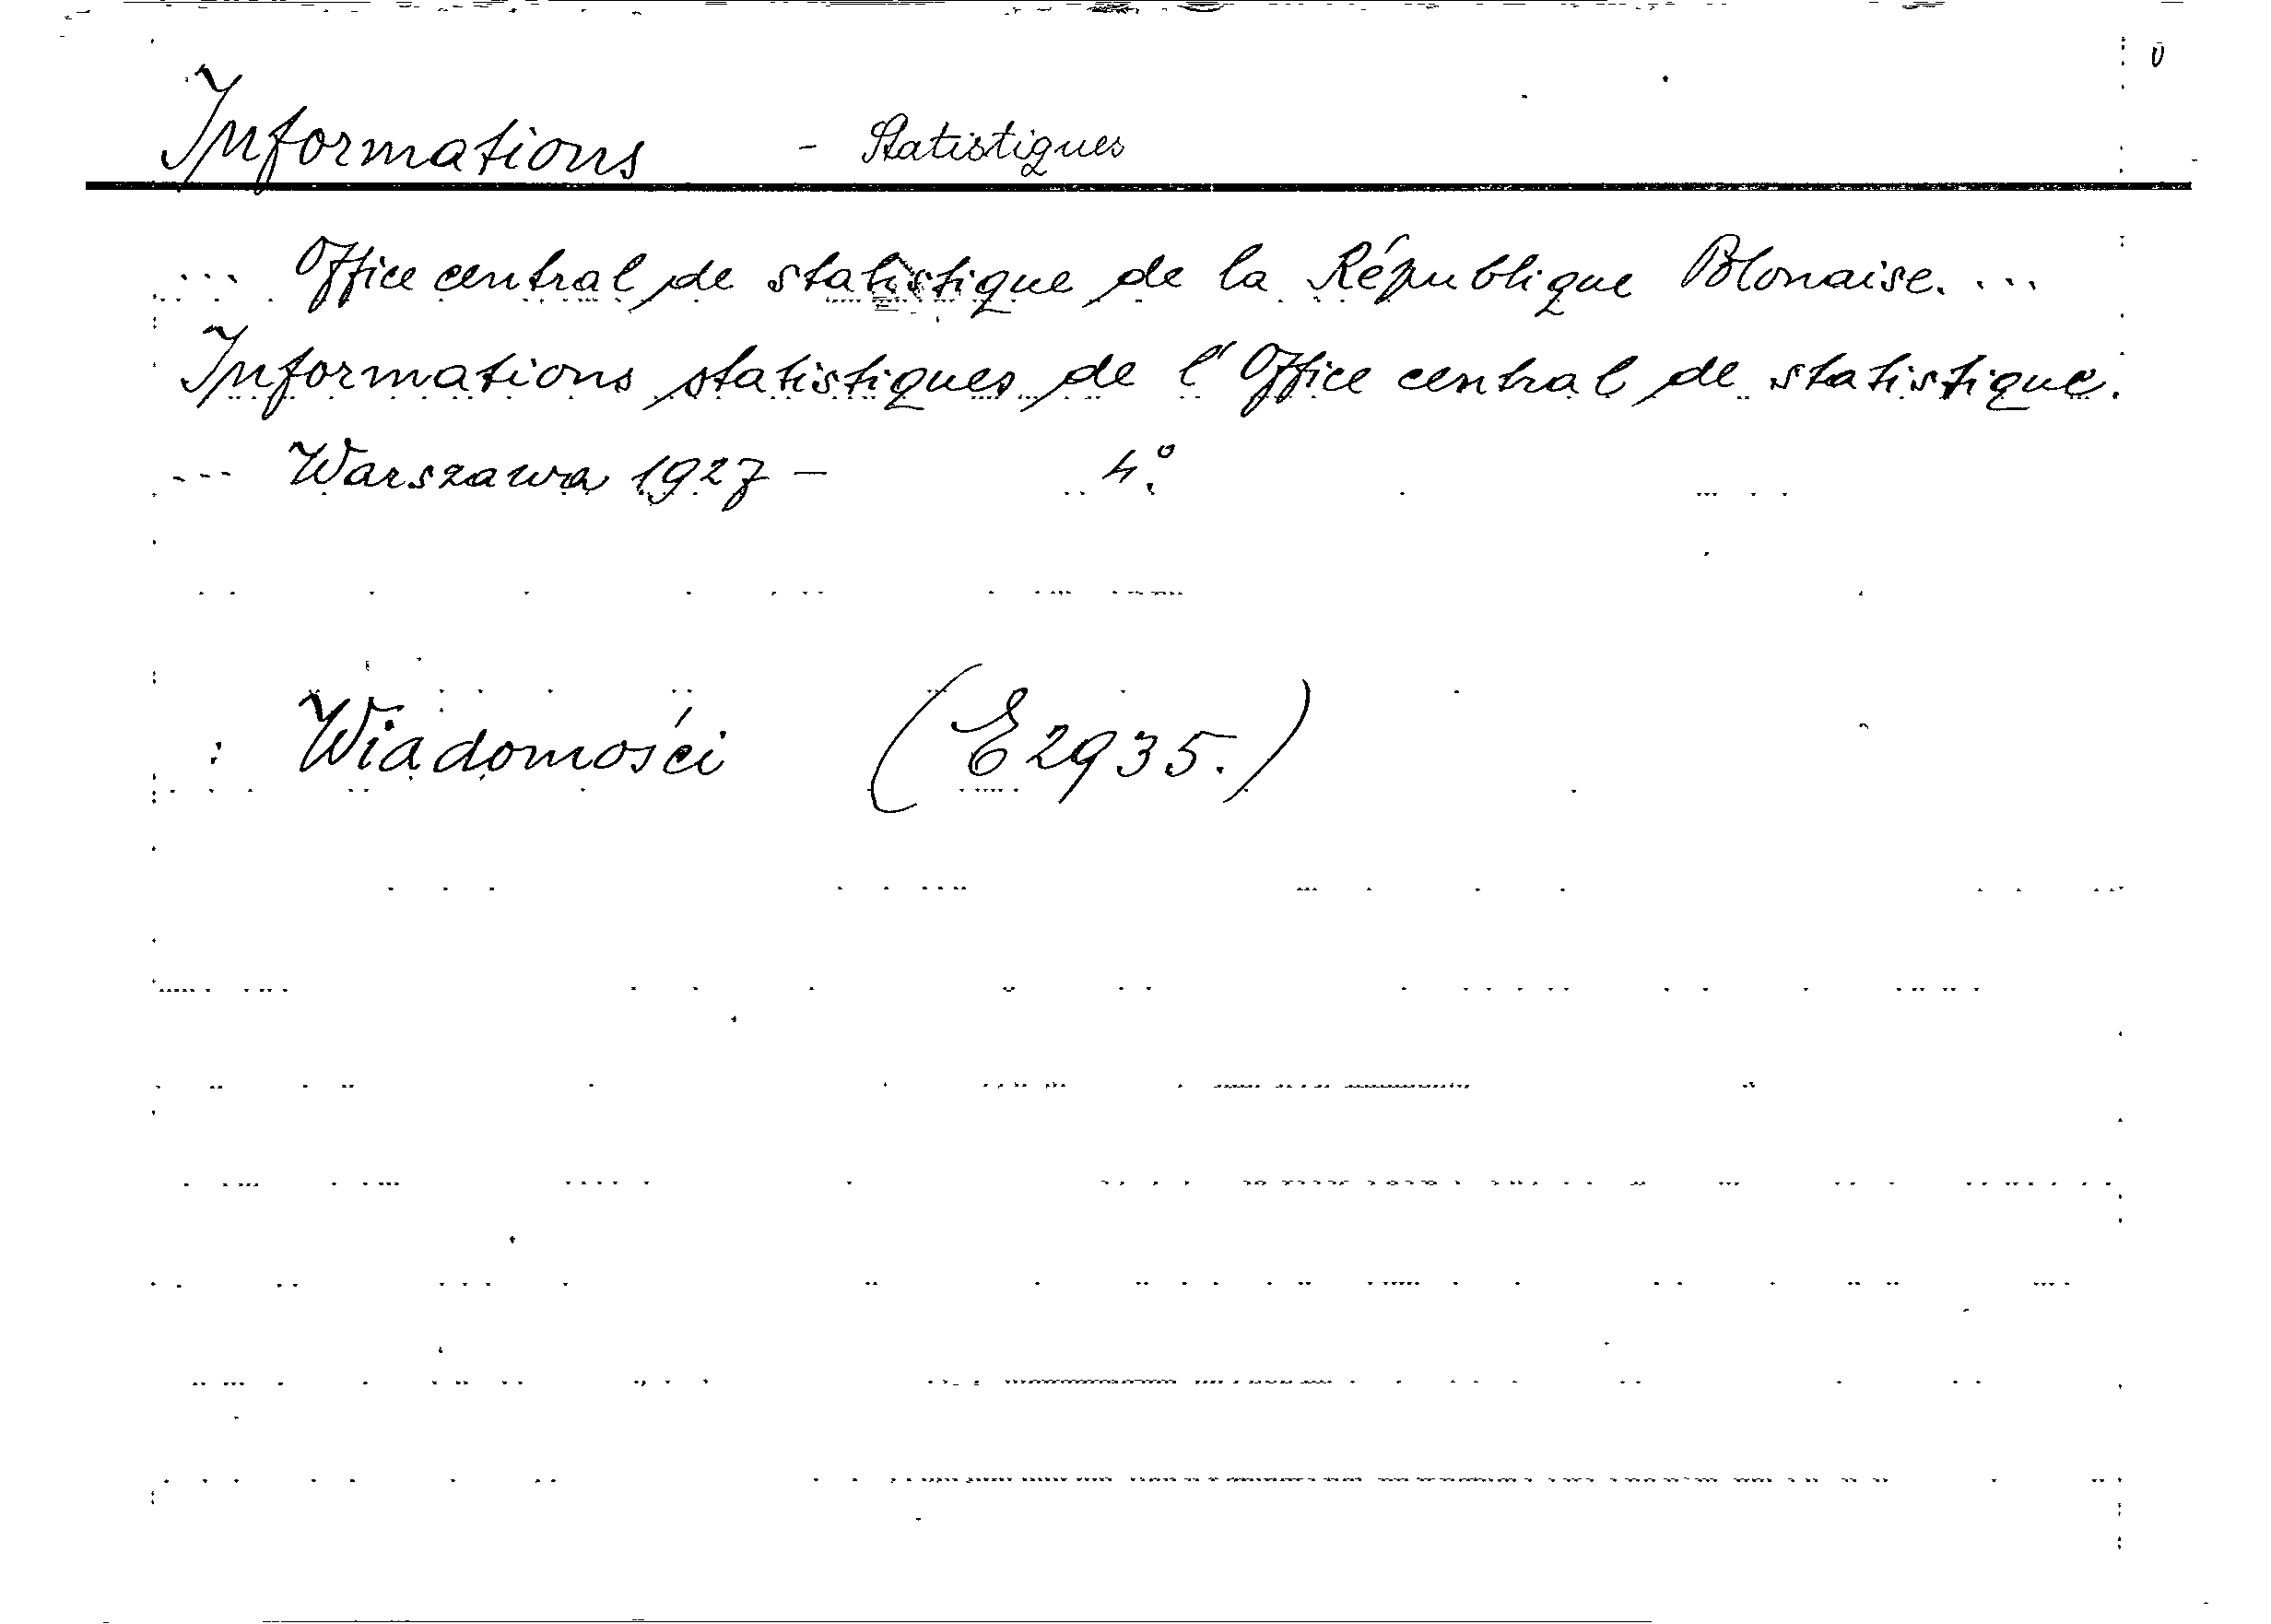 Informations - Statistiques
... Office central de statistique de la République Polonaise. ...
Informations statistiques de l'Office central de statistique.
--- Warszawa 1927 – 4.°
: Wiadomości (E2935.)